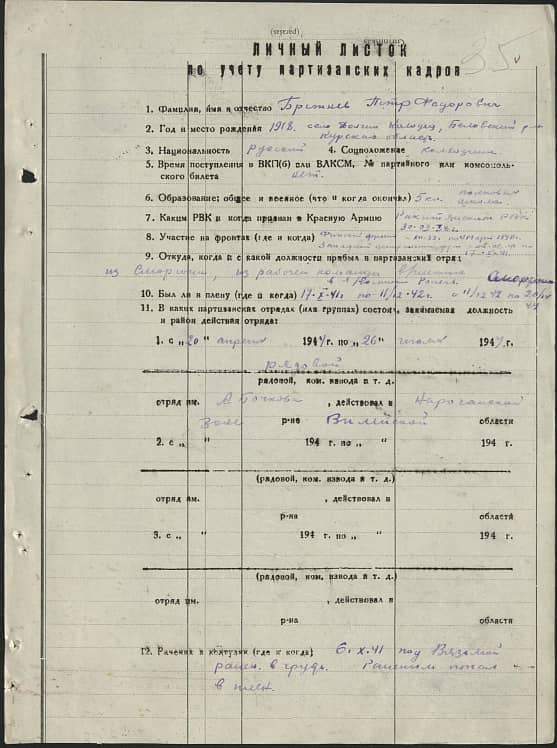 (серезор)
ЛИЧНЫЙ ЛИСТОК
по учету партизанских кадров
1. Фамилия, имя и отчество Брежнев Петр Федорович
2. Год и место рождения 1918. село Долгий Колодец, Беловский р-н
Курская область
3. Национальность русский 4. Соцположение колхозник
5. Время поступления в ВКП(б) или ВЛКСМ, № партийного или комсомоль-
ского билета нет.
6. Образование: общее и военное (что и когда окончил) 5 кл. полковая школа
7. Каким РВК и когда призван в Красную Армию РВК
8. Участие на фронтах (где и когда)
9. Откуда, когда и с какой должности прибыл в партизанский отряд:
из Сморгони, из рабочей команды
10. Был ли в плену (где и когда) 17-X-41 по 11/12-42г. с 11/12 42 по 20/IV
44
11. В каких партизанских отрядах (или группах) состоял, занимаемая должность
и район действия отряда:
1. с „20" апреля 1944 г. по „26" июля 1944 г.
рядовой
(рядовой, ком. взвода и т. д.)
отряд им. , действовал в Нарочанской
зоне р-на Вилейской области
2. с „ " 194 г. по „ " 194 г.
(рядовой, ком. взвода и т. д.)
отряд им. , действовал в
р-на области
3. с „ " 194 г. по „ " 194 г.
(рядовой, ком. взвода и т. д.)
отряд им. , действовал в
р-на области
12. Ранения и контузии (где и когда) 6. X. 41 под Вязьмой
ранен в грудь. Раненым попал
в плен.